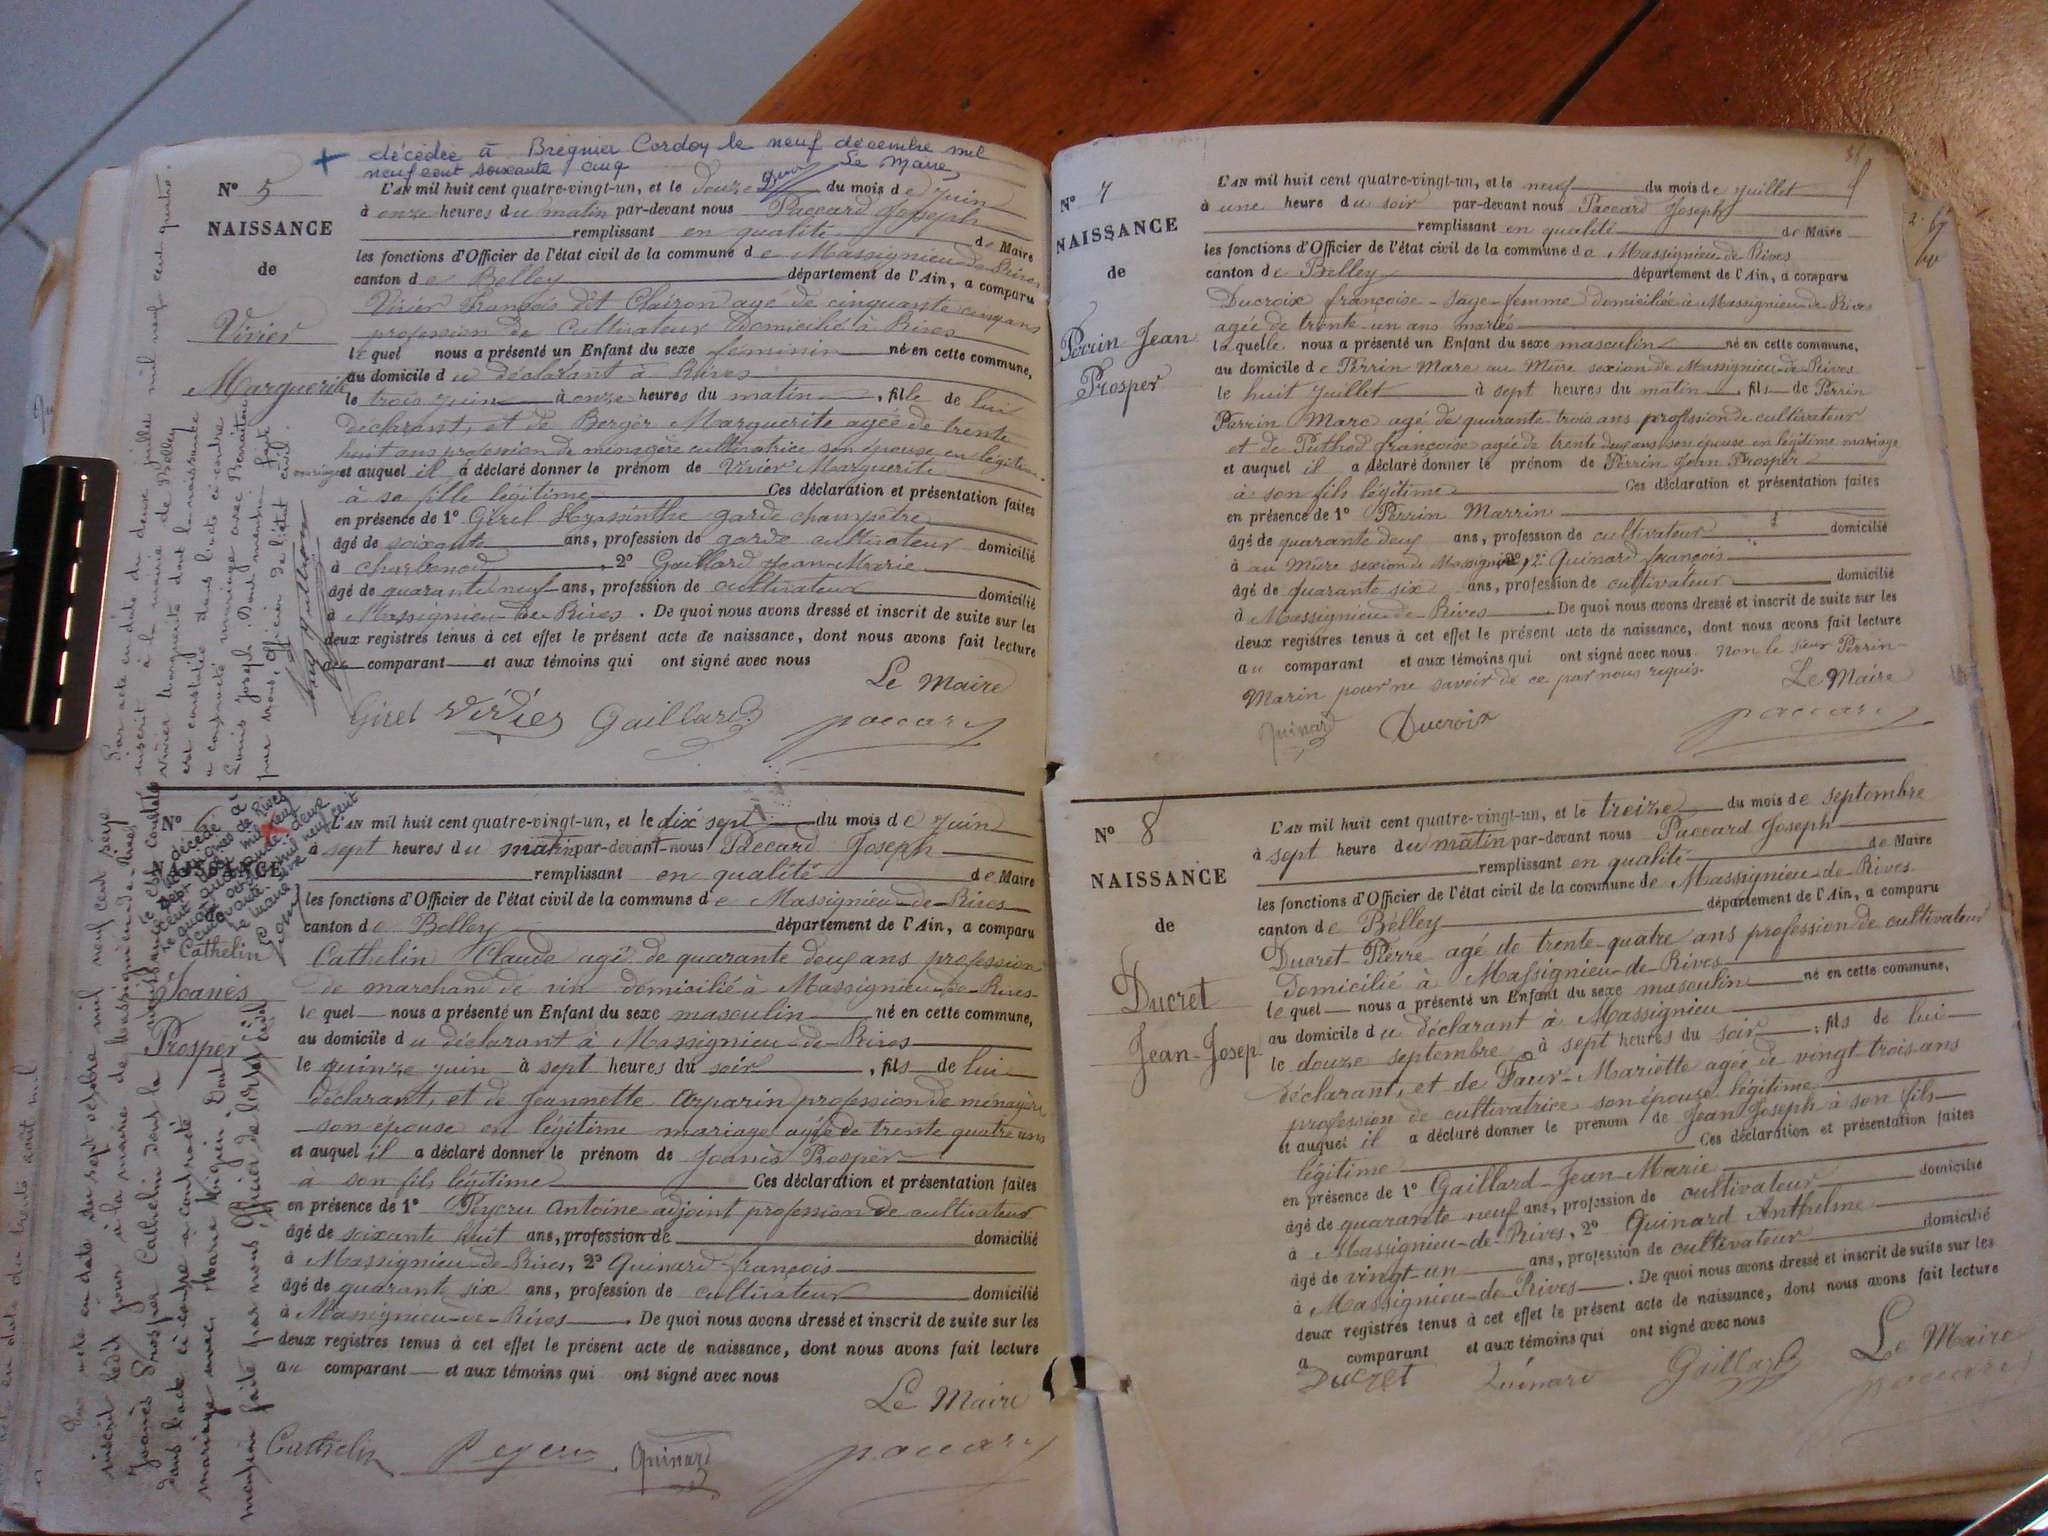 + décédée à Brégnier Cordon le neuf décembre mil
neuf cent soixante cinq Le Maire,
N° 5
NAISSANCE
de
Virier
Marguerite
L'AN mil huit cent quatre-vingt-un, et le douze du mois de Juin
à onze heures du matin par-devant nous Paccard Joseph
remplissant en qualité de Maire
les fonctions d'Officier de l'état civil de la commune de Massignieu-de-Rives
canton de Belley département de l'Ain, a comparu
Virier François dit Clairon agé de cinquante cinq ans
profession de Cultivateur Domicilié à Rives
lequel nous a présenté un Enfant du sexe féminin né en cette commune,
au domicile du déclarant à Rives
le trois juin à onze heures du matin, fille de lui
déclarant, et de Berger Marguerite agée de trente
huit ans profession de ménagère cultivatrice son épouse en légitime
mariage et auquel il a déclaré donner le prénom de Virier Marguerite
à sa fille légitime Ces déclaration et présentation faites
en présence de 1° Girel Hyassinthe garde champêtre
âgé de soixante ans, profession de garde cultivateur domicilié
à charbonod, 2° Gaillard Jean Marie
âgé de quarante neuf ans, profession de cultivateur domicilié
à Massignieu-de-Rives. De quoi nous avons dressé et inscrit de suite sur les
deux registres tenus à cet effet le présent acte de naissance, dont nous avons fait lecture
au comparant et aux témoins qui ont signé avec nous
Le Maire
Girel Virier Gaillard paccard
Par acte en date du deux juillet mil neuf cent quatre
inscrit à la mairie de Belley
Virier Marguerite dont la naissance
est constatée dans l'acte ci-contre
a contracté mariage avec
Louis Joseph. Dont mention faite
par nous, officier de l'état civil.
N° 6
NAISSANCE
Cathelin
Joanès
Prosper
décédé à
Massignieu de Rives
Le Maire
L'AN mil huit cent quatre-vingt-un, et le dix sept du mois de Juin
à sept heures du matin par-devant-nous Paccard Joseph
remplissant en qualité de Maire
les fonctions d'Officier de l'état civil de la commune de Massignieu-de-Rives
canton de Belley département de l'Ain, a comparu
Cathelin Claude agé de quarante deux ans profession
de marchand de vin domicilié à Massignieu-de-Rives
lequel nous a présenté un Enfant du sexe masculin né en cette commune,
au domicile du déclarant à Massignieu-de-Rives
le quinze juin à sept heures du soir, fils de lui
déclarant, et de Jeannette Arparin profession de ménagère
son épouse en légitime mariage agée de trente quatre ans
et auquel il a déclaré donner le prénom de Joanès Prosper
à son fils légitime Ces déclaration et présentation faites
en présence de 1° Peycru Antoine adjoint profession de cultivateur
âgé de soixante huit ans, profession de domicilié
à Massignieu-de-Rives, 2° Quinard françois
âgé de quarante six ans, profession de cultivateur domicilié
à Massignieu-de-Rives. De quoi nous avons dressé et inscrit de suite sur les
deux registres tenus à cet effet le présent acte de naissance, dont nous avons fait lecture
au comparant et aux témoins qui ont signé avec nous
Le Maire
Cathelin Peycru Quinard paccard
Par acte en date du sept octobre mil neuf cent seize
inscrit ledit jour à la mairie de Massignieu-de-Rives
Joanès Prosper Cathelin dont la naissance est constatée
dans l'acte ci-contre a contracté
mariage avec Marie Dont
mention faite par nous Officier de l'état civil
N° 7
NAISSANCE
de
Perrin Jean
Prosper
L'AN mil huit cent quatre-vingt-un, et le neuf du mois de Juillet
à une heure du soir par-devant nous Paccard Joseph
remplissant en qualité de Maire
les fonctions d'Officier de l'état civil de la commune de Massignieu-de-Rives
canton de Belley département de l'Ain, a comparu
Ducroix françoise - sage-femme domiciliée à Massignieu-de-Rives
agée de trente-un ans mariée
laquelle nous a présenté un Enfant du sexe masculin né en cette commune,
au domicile de Perrin Marc au Mure sexion de Massignieu-de-Rives
le huit juillet à sept heures du matin, fils de Perrin
Perrin Marc agé de quarante trois ans profession de cultivateur
et de Puthod françoise agée de trente deux ans son épouse en légitime mariage
et auquel il a déclaré donner le prénom de Perrin Jean Prosper
à son fils légitime Ces déclaration et présentation faites
en présence de 1° Perrin Marrin
âgé de quarante deux ans, profession de cultivateur domicilié
à au Mure sexion de Massignieu, 2° Quinard françois
âgé de quarante six ans, profession de cultivateur domicilié
à Massignieu-de-Rives. De quoi nous avons dressé et inscrit de suite sur les
deux registres tenus à cet effet le présent acte de naissance, dont nous avons fait lecture
au comparant et aux témoins qui ont signé avec nous Non le sieur Perrin
Marin pour ne savoir de ce par nous requis.
Le Maire
Quinard Ducroix paccard
N° 8
NAISSANCE
de
Ducret
Jean-Josep
L'AN mil huit cent quatre-vingt-un, et le treize du mois de septembre
à sept heure du matin par-devant nous Paccard Joseph
remplissant en qualité de Maire
les fonctions d'Officier de l'état civil de la commune de Massignieu-de-Rives
canton de Bélley département de l'Ain, a comparu
Ducret Pierre agé de trente-quatre ans profession de cultivateur
domicilié à Massignieu-de-Rives
lequel nous a présenté un Enfant du sexe masculin né en cette commune,
au domicile du déclarant à Massignieu
le douze septembre à sept heures du soir, fils de lui
déclarant, et de Faur-Mariette agée de vingt-trois ans
profession de cultivatrice son épouse légitime
et auquel il a déclaré donner le prénom de Jean Joseph à son fils
légitime Ces déclaration et présentation faites
en présence de 1° Gaillard-Jean-Marie
âgé de quarante neuf ans, profession de cultivateur domicilié
à Massignieu-de-Rives, 2° Quinard Anthelme
âgé de vingt-un ans, profession de cultivateur domicilié
à Massignieu-de-Rives. De quoi nous avons dressé et inscrit de suite sur les
deux registres tenus à cet effet le présent acte de naissance, dont nous avons fait lecture
a comparant et aux témoins qui ont signé avec nous
Le Maire
Ducret Quinard Gaillard paccard